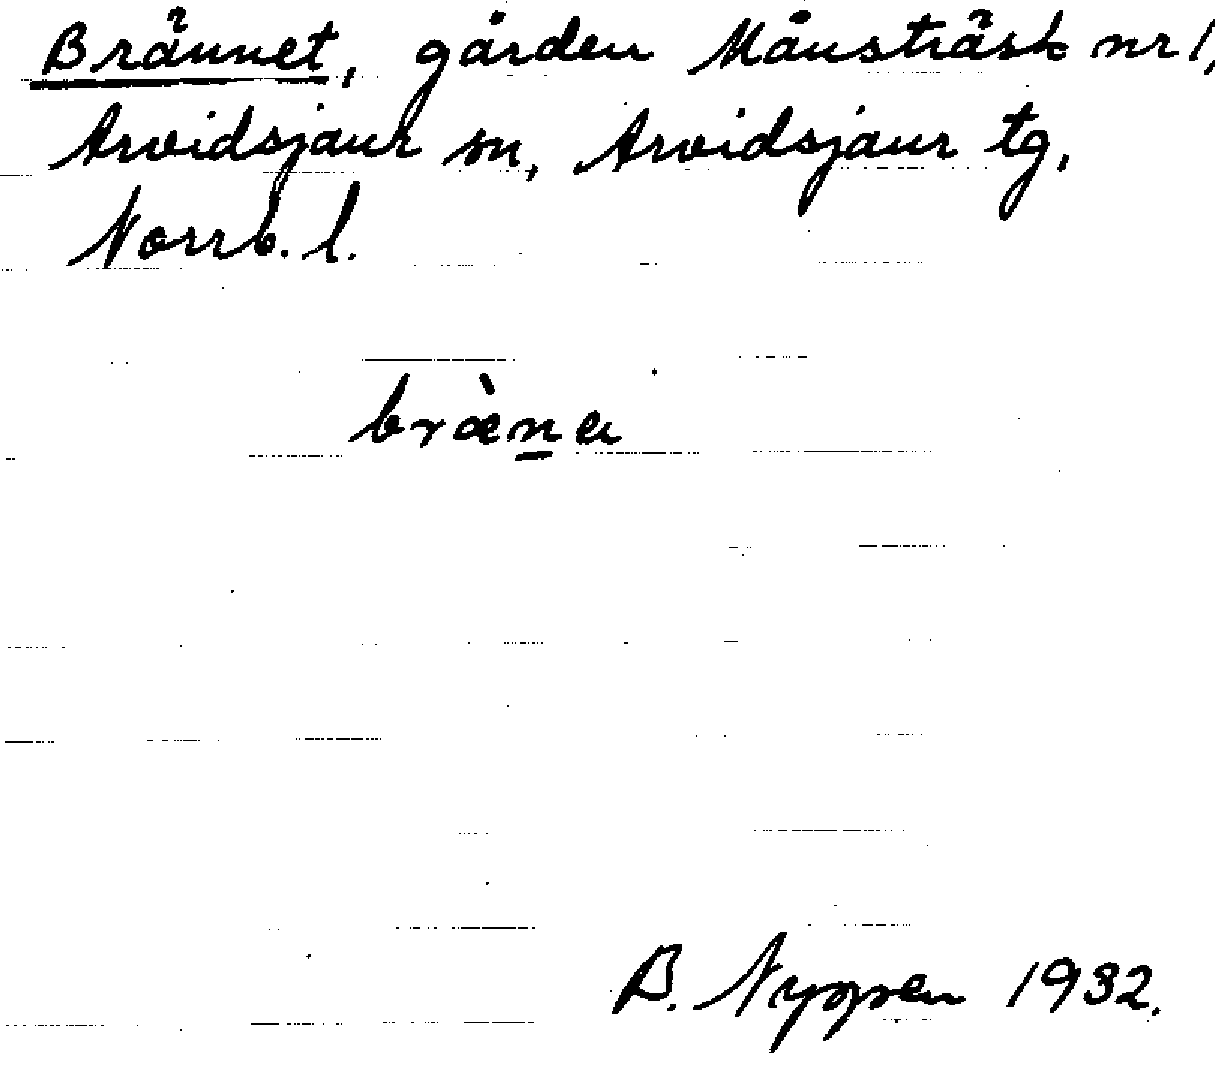 Brännet, gården Månsträsk nr 1,
Arvidsjaur sn, Arvidsjaur tg,
Norrb. l.
bræ̀n̲a
B. Nyppen 1932.